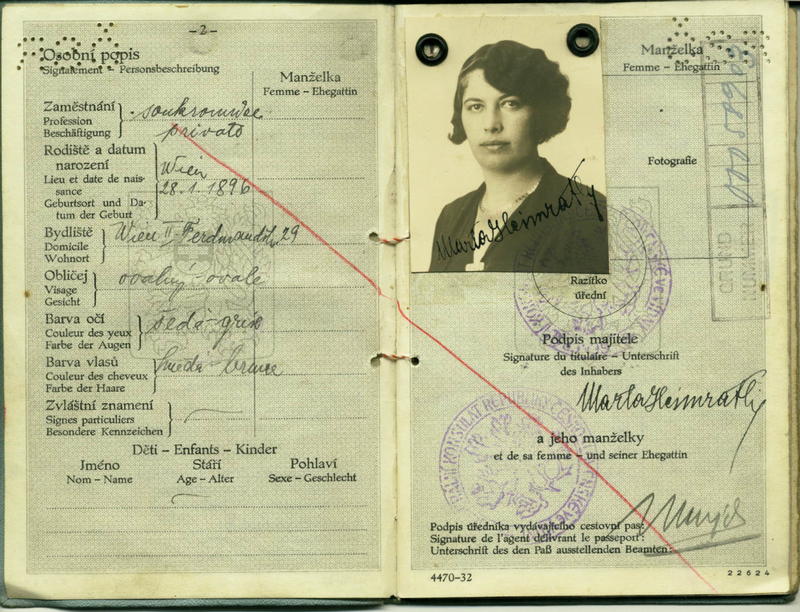 -2-
Osobní popis
Signalement - Personsbeschreibung
Manželka
Femme - Ehegattin
Zaměstnání
Profession
Beschäftigung
Rodiště a datum
narození
Lieu et date de nais-
sance
Geburtsort und Da-
tum der Geburt
Wien
28.1.1896
Bydliště
Domicile
Wohnort
Wien II 29
Obličej
Visage
Gesicht
oválný-ovale
Barva očí
Couleur des yeux
Farbe der Augen
šedá-grise
Barva vlasů
Couleur des cheveux
Farbe der Haare
Zvláštní znamení
Signes particuliers
Besondere Kennzeichen
Děti - Enfants - Kinder
Jméno Stáří Pohlaví
Nom - Name Age - Alter Sexe - Geschlecht
Manželka
Femme - Ehegattin
Fotografie
GRUND
NUMMER
Marta Heimrath
Razítko
úřední
Podpis majitele
Signature du titulaire - Unterschrift
des Inhabers
Marta Heimrath
a jeho manželky
et de sa femme - und seiner Ehegattin
Podpis úředníka vydávajícího cestovní pas:
Signature de l'agent délivrant le passeport:
Unterschrift des den Paß ausstellenden Beamten:
4470-32
22624